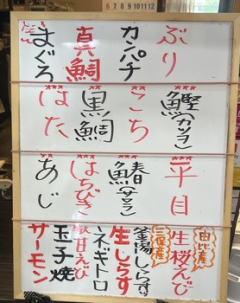 6 7 8 9 10 11 12
ぶり
カンパチ
真鯛
まぐろ
鰹(カツヲ)
こち
黒鯛
はた
平目
鰆(サワラ)
はちびき
あじ
由比産
生桜えび
三保産
釜揚しらす
生しらす
ネギトロ
甘えび
玉子焼
サーモン